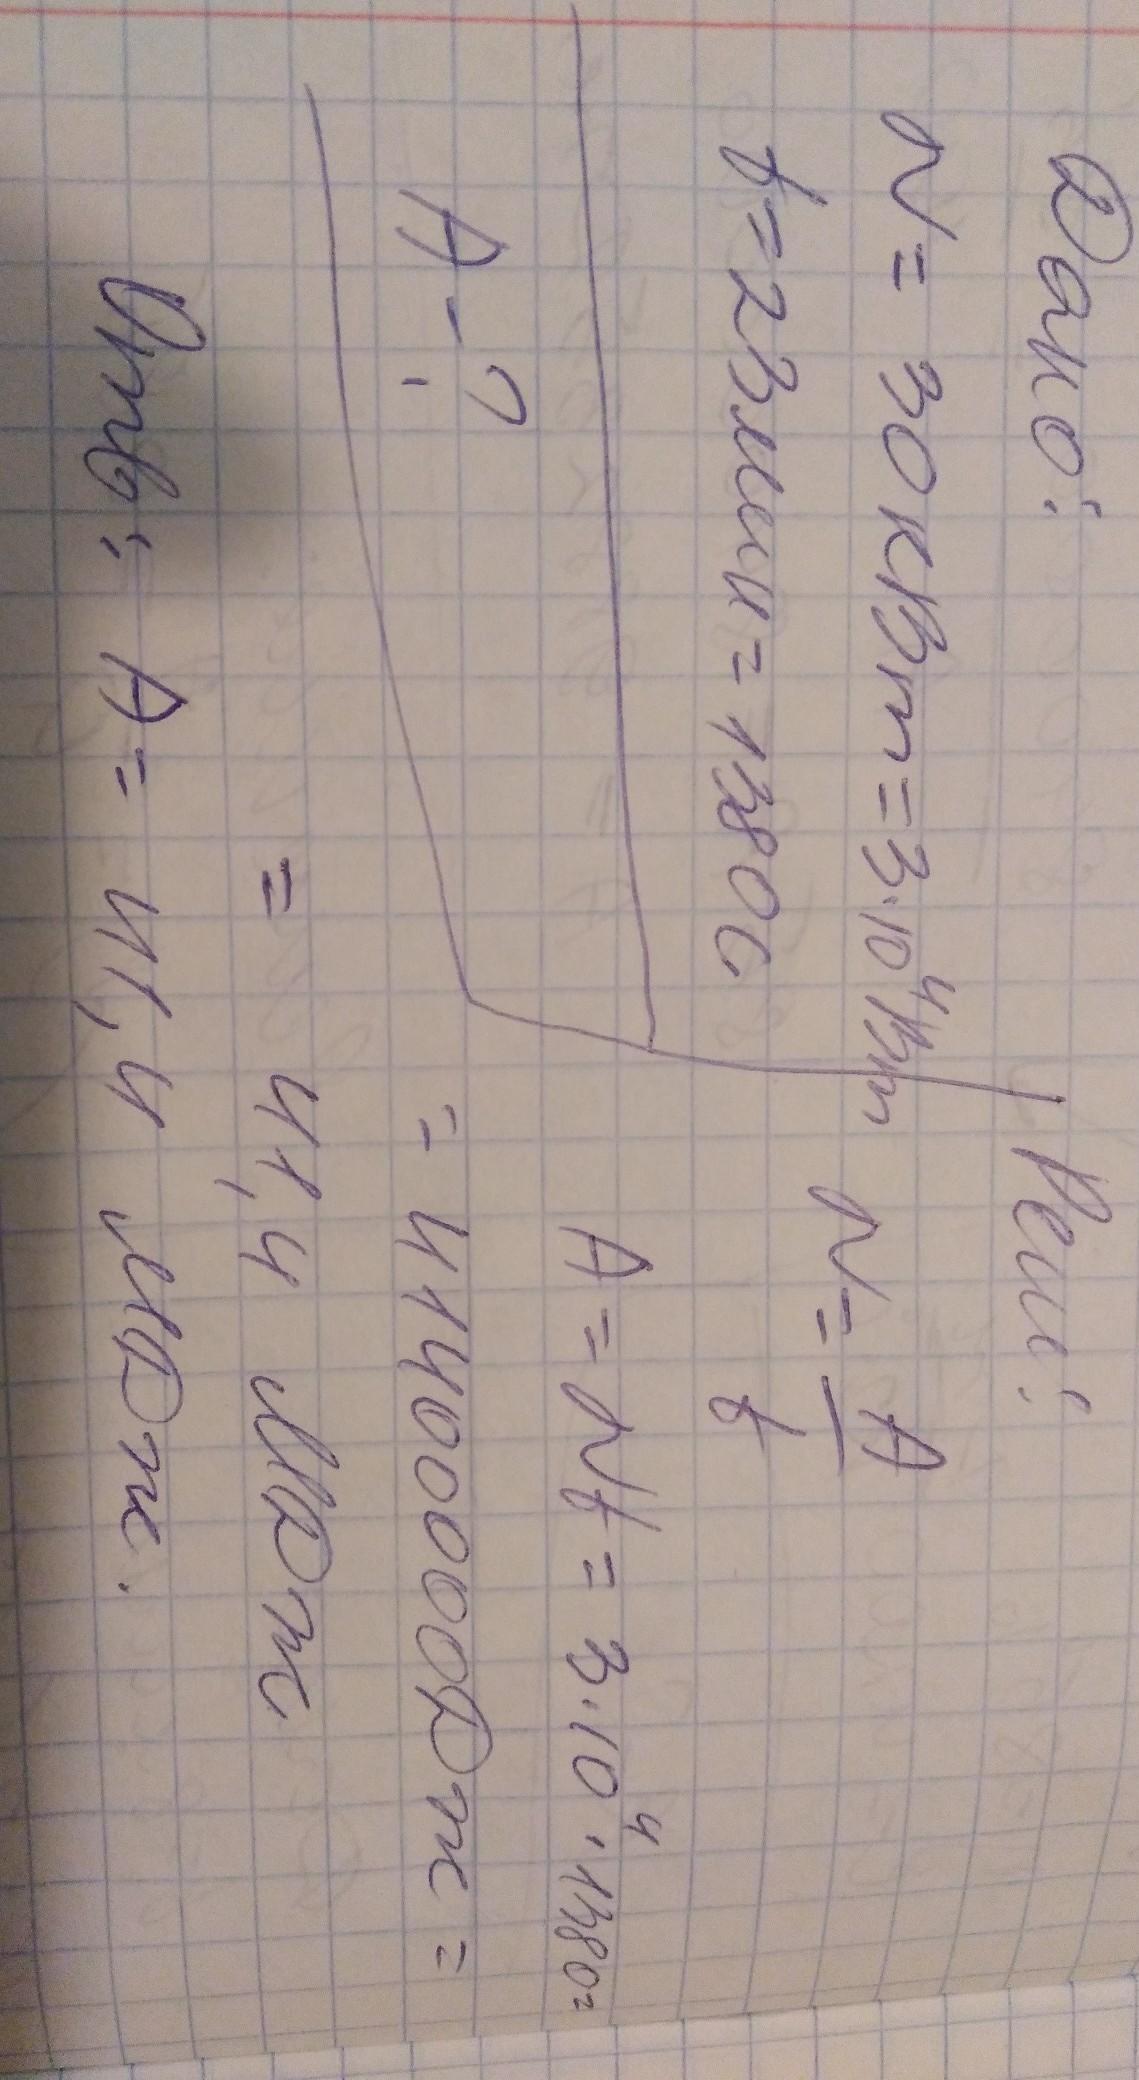 Дано:
N = 30кВт = 3·10⁴Вт
t = 23мин = 1380с
A - ?
Реш:
N = A/t
A = Nt = 3·10⁴·1380=
= 41400000Дж =
= 41,4 МДж
Отв: A = 41,4 МДж.